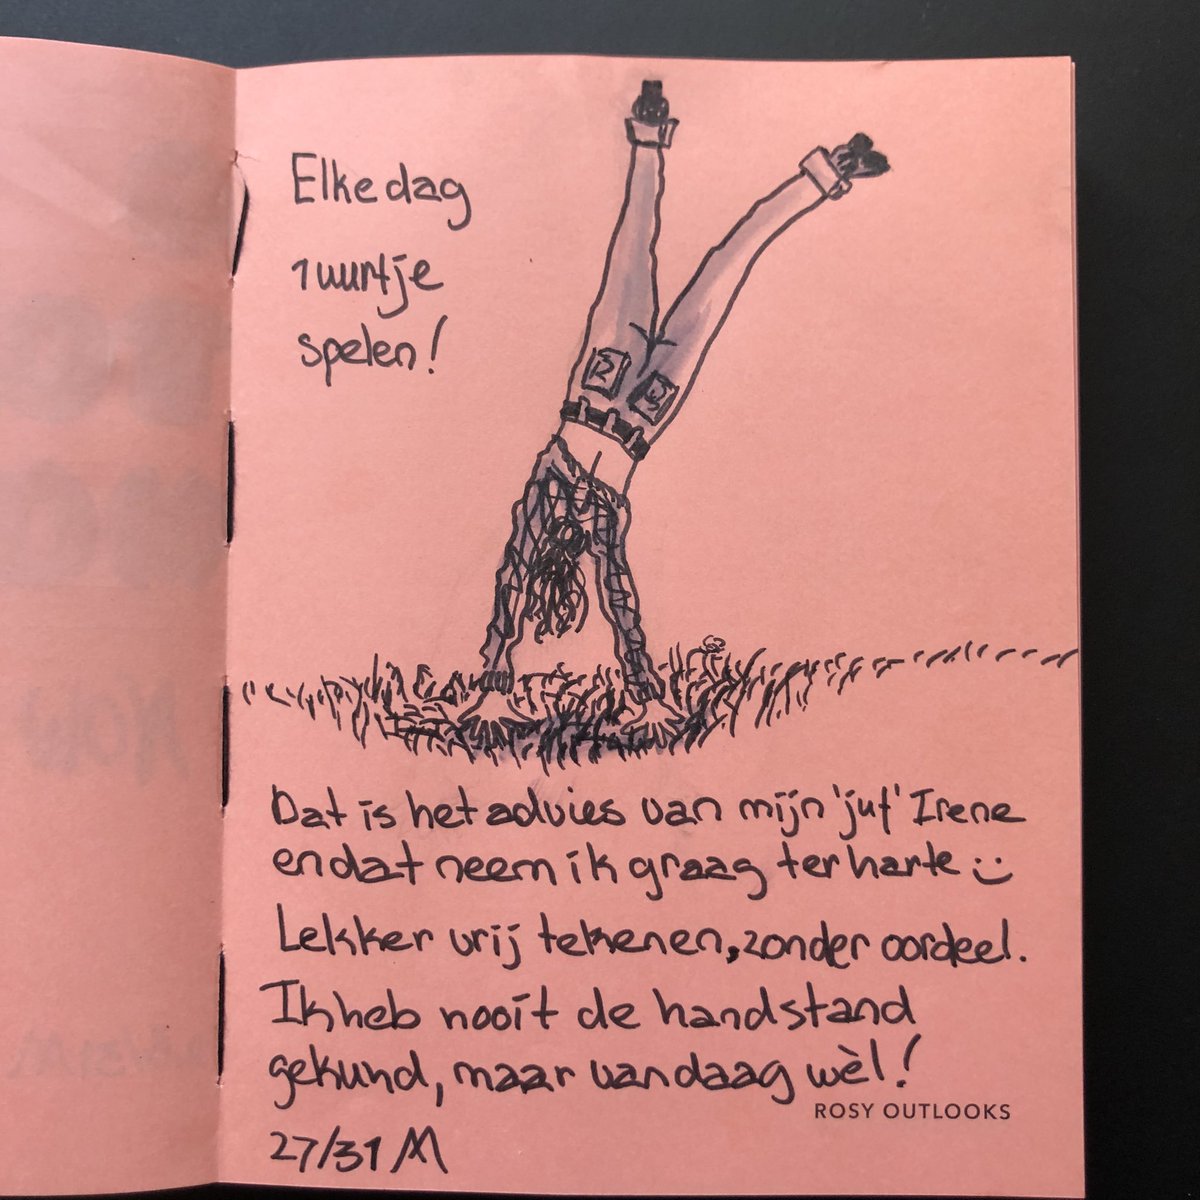 Elke dag
1 uurtje
spelen!
Dat is het advies van mijn 'juf' Irene
en dat neem ik graag ter harte :)
Lekker vrij tekenen, zonder oordeel.
Ik heb nooit de handstand
gekund, maar vandaag wèl!
ROSY OUTLOOKS
27/31 M